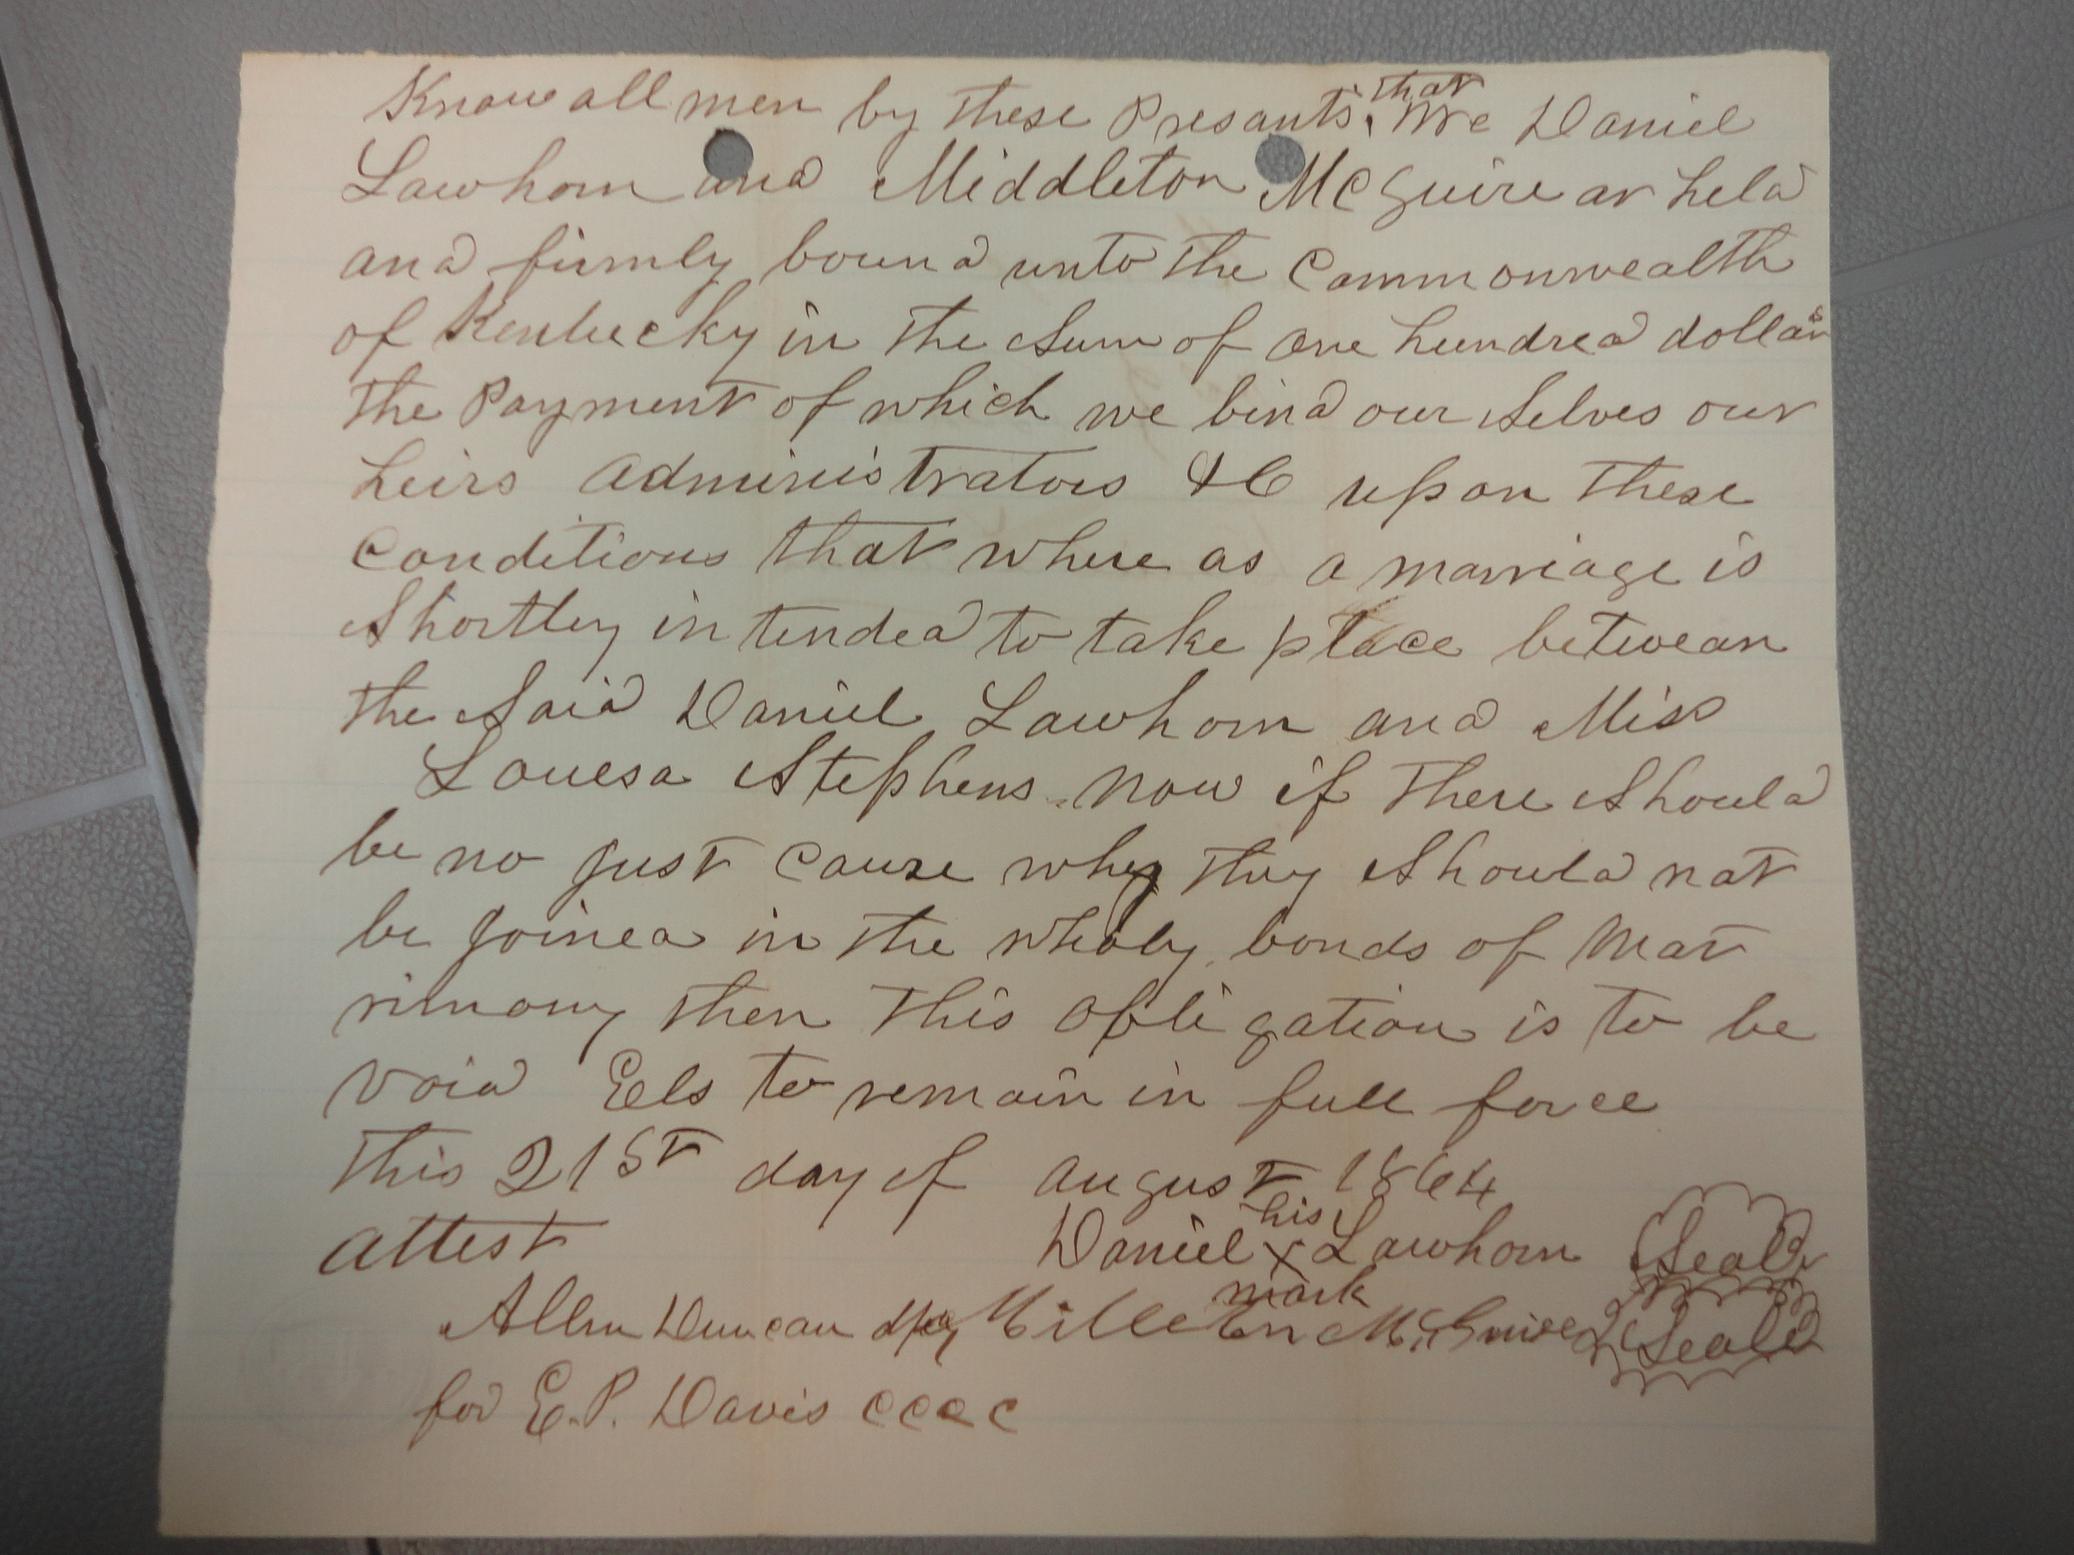 Know all men by these Presants, that We Daniel
Lawhorn and Middleton McGuire ar held
and firmly bound unto the Commonwealth
of Kentucky in the Sum of one hundred dollars
the Payment of which we bind our selves our
heirs administrators &C upon these
Conditions that where as a marriage is
Shortley intended to take place betwean
the Said Daniel Lawhorn and Miss
Louesa Stephens now if there should
be no just cause why they should not
be joined in the wholy bonds of Mat
rimony then this obligation is to be
void Els to remain in full force
this 21st day of august 1864
attest Daniel his x mark Lawhorn Seal
Allen Duncan McGuire Seal
for E.P. Davis CCCC